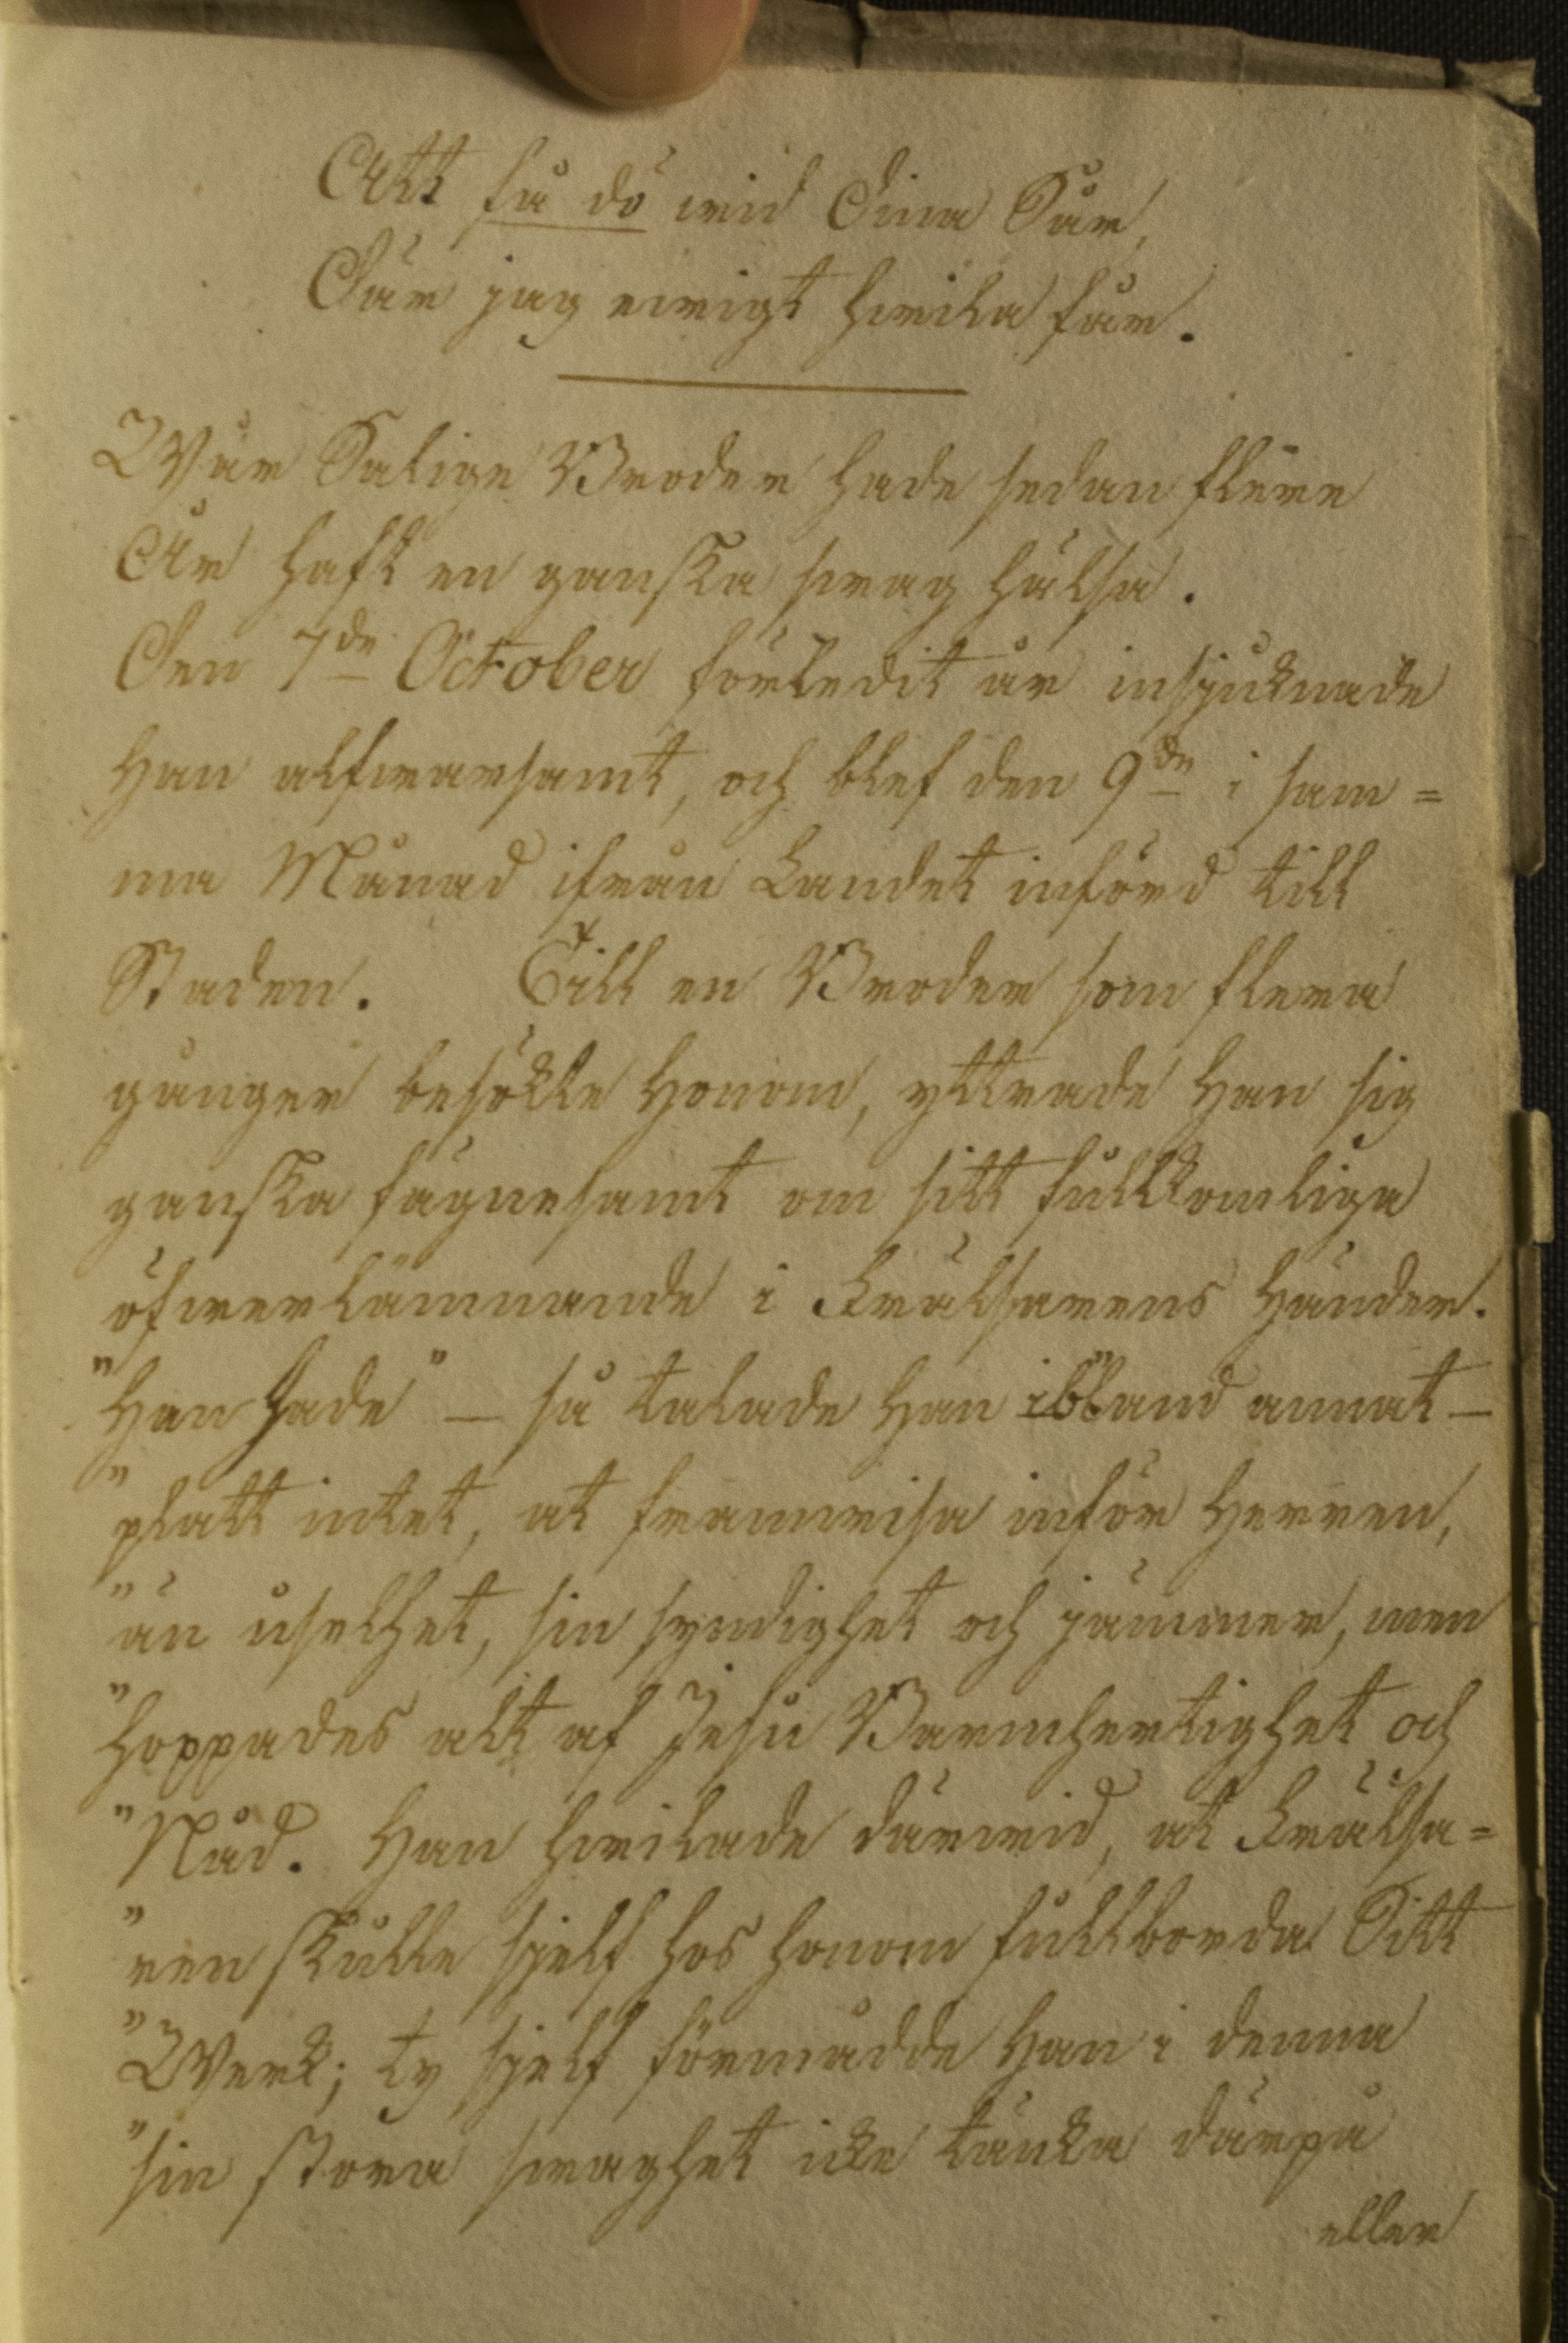 Att få dö wid Dina Sår,
Där jag ewigt hwila får.
Wår Salige Broder hade sedan flere
År haft en ganska swag hälsa.
Den 7de October förledit år insjuknade
Han alfwarsamt, och blef den 9de i sam=
ma Månad ifrån Landet införd till
Staden. Till en Broder som flera
gånger besökte Honom, yttrade Han sig
ganska fägnesamt om sitt fullkomliga
öfwerlämnande i Frälsarens Händer.
"Han hade" — så talade Han ibland annat —
"platt intet, at framwisa inför Herren,
"än uselhet, sin syndighet och jämmer, men
"hoppades alt af Jesu Barmhertighet och
"Nåd. Han hwilade därwid, at Frälsa=
"ren skulle sjelf hos honom fullborda Sitt
"Werk; ty sjelf förmådde Han i denna
"sin stora swaghet icke tänka därpå
eller